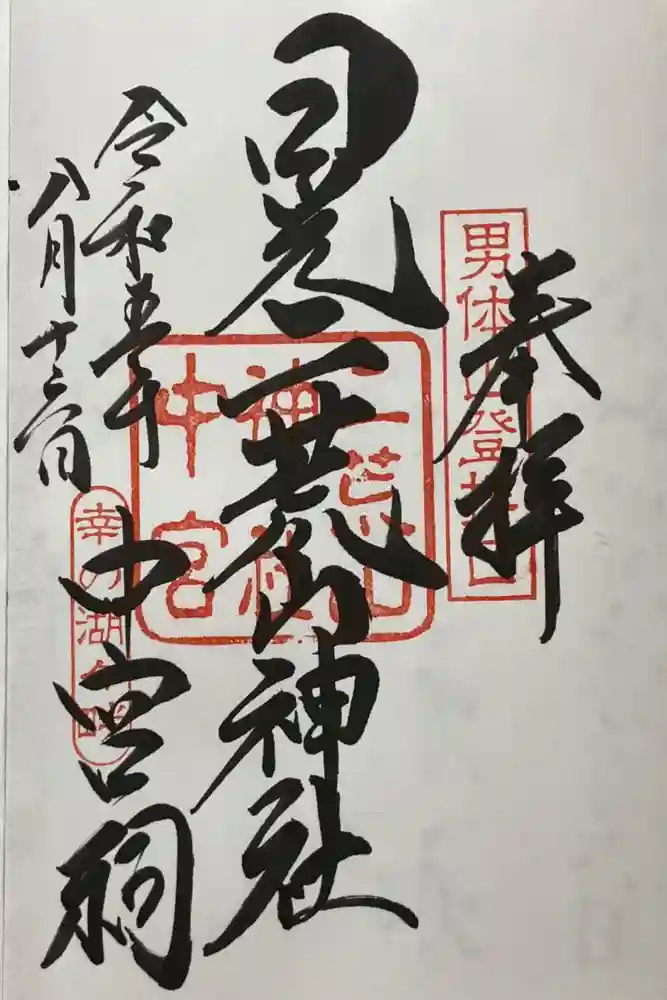 奉拝
男体山登拝口
日光二荒山神社
二荒山
神社
中宮
中宮祠
幸の湖
令和五年
八月十二日